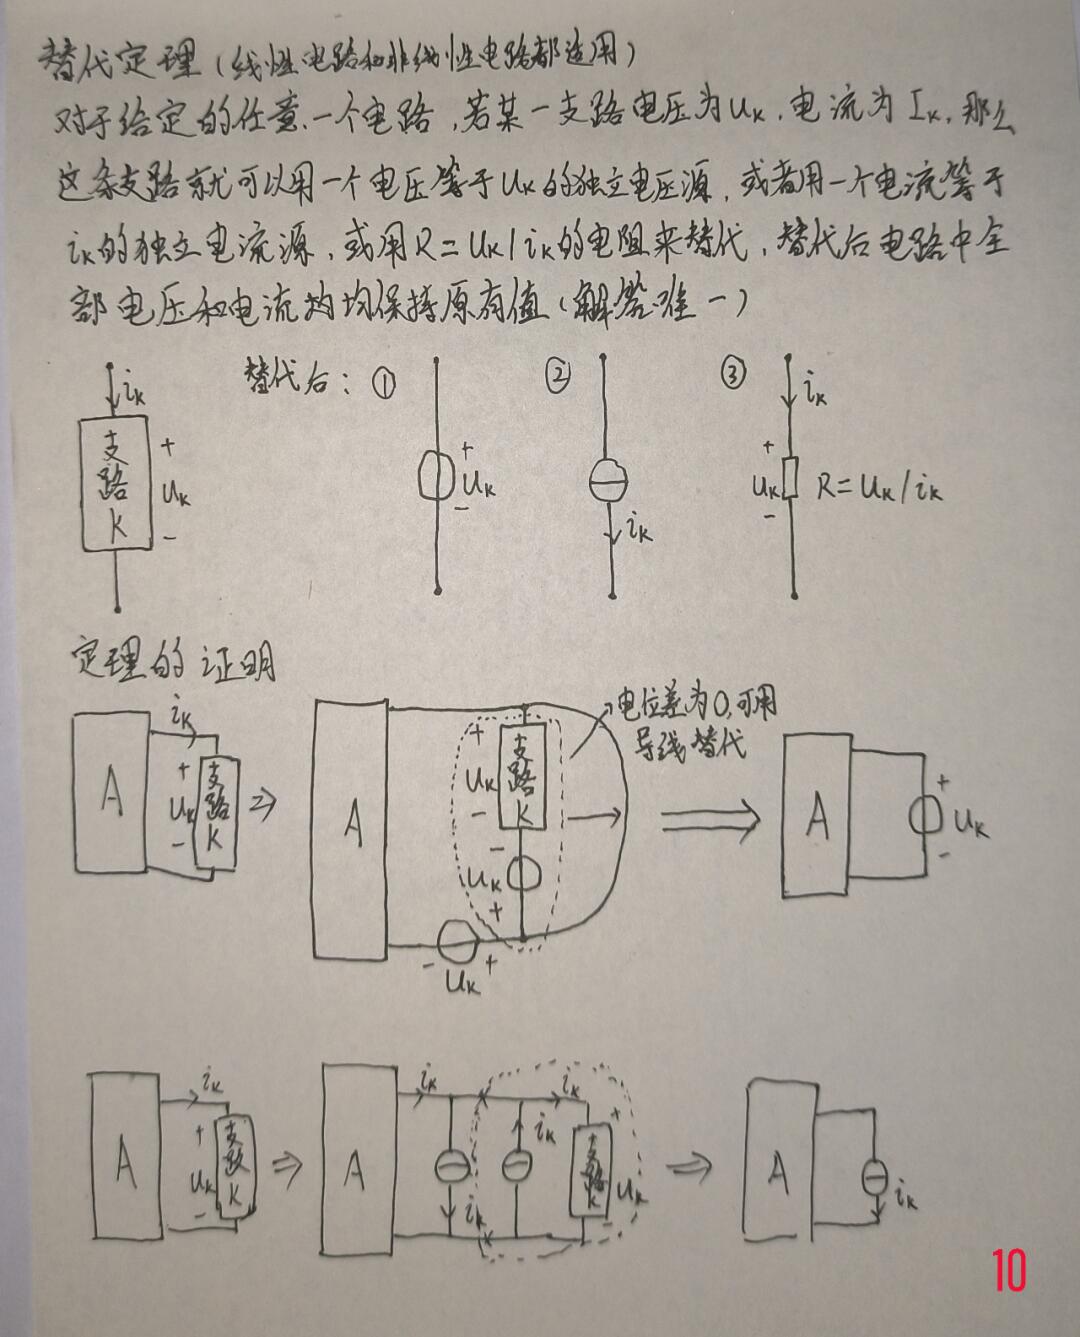 替代定理(线性电路和非线性电路都适用)
对于给定的任意一个电路,若某一支路电压为uk、电流为Ik,那么
这条支路就可以用一个电压等于uk的独立电压源,或者用一个电流等于
ik的独立电流源,或用R=uk/ik的电阻来替代,替代后电路中全
部电压和电流均均保持原有值(解答唯一)
替代后: ① ② ③
ik
支路K
+
uk
-
+
uk
-
ik
ik
+
uk
-
R=uk/ik
定理的证明
A
ik
+
uk
-
支路K
A
+
uk
-
支路K
-
uk
+
-
uk
+
电位差为0,可用
导线替代
A
+
uk
-
A
ik
+
uk
-
支路K
A
ik
ik
ik
ik
支路K
+
uk
-
A
ik
10